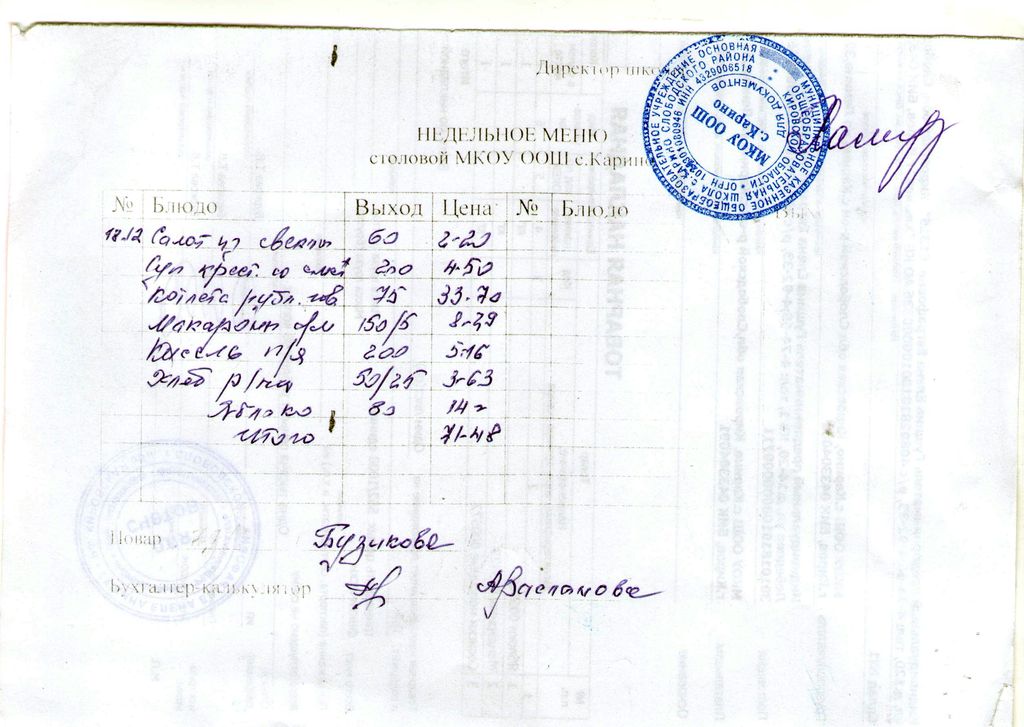 Директор шко
НЕДЕЛЬНОЕ МЕНЮ
столовой МКОУ ООШ с.Карино
МУНИЦИПАЛЬНОЕ КАЗЕННОЕ ОБЩЕОБРАЗОВАТЕЛЬНОЕ УЧРЕЖДЕНИЕ ОСНОВНАЯ
ОБЩЕОБРАЗОВАТЕЛЬНАЯ ШКОЛА с.КАРИНО СЛОБОДСКОГО РАЙОНА
КИРОВСКОЙ ОБЛАСТИ * ОГРН ИНН 4329006518
ДЛЯ ДОКУМЕНТОВ
МКОУ ООШ
с.Карино
№ Блюдо Выход Цена № Блюдо
18.12 Салат из свеклы 60 2-20
Суп крест. со смет 200 4-50
Котлета рубл. гов 75 33-70
Макароны с/м 150/5 8-29
Кисель п/я 200 5-16
Хлеб р/пш 50/25 3-63
Яблоко 80 14=
Итого 71-48
Повар Бузикова
Бухгалтер-калькулятор А Расланова